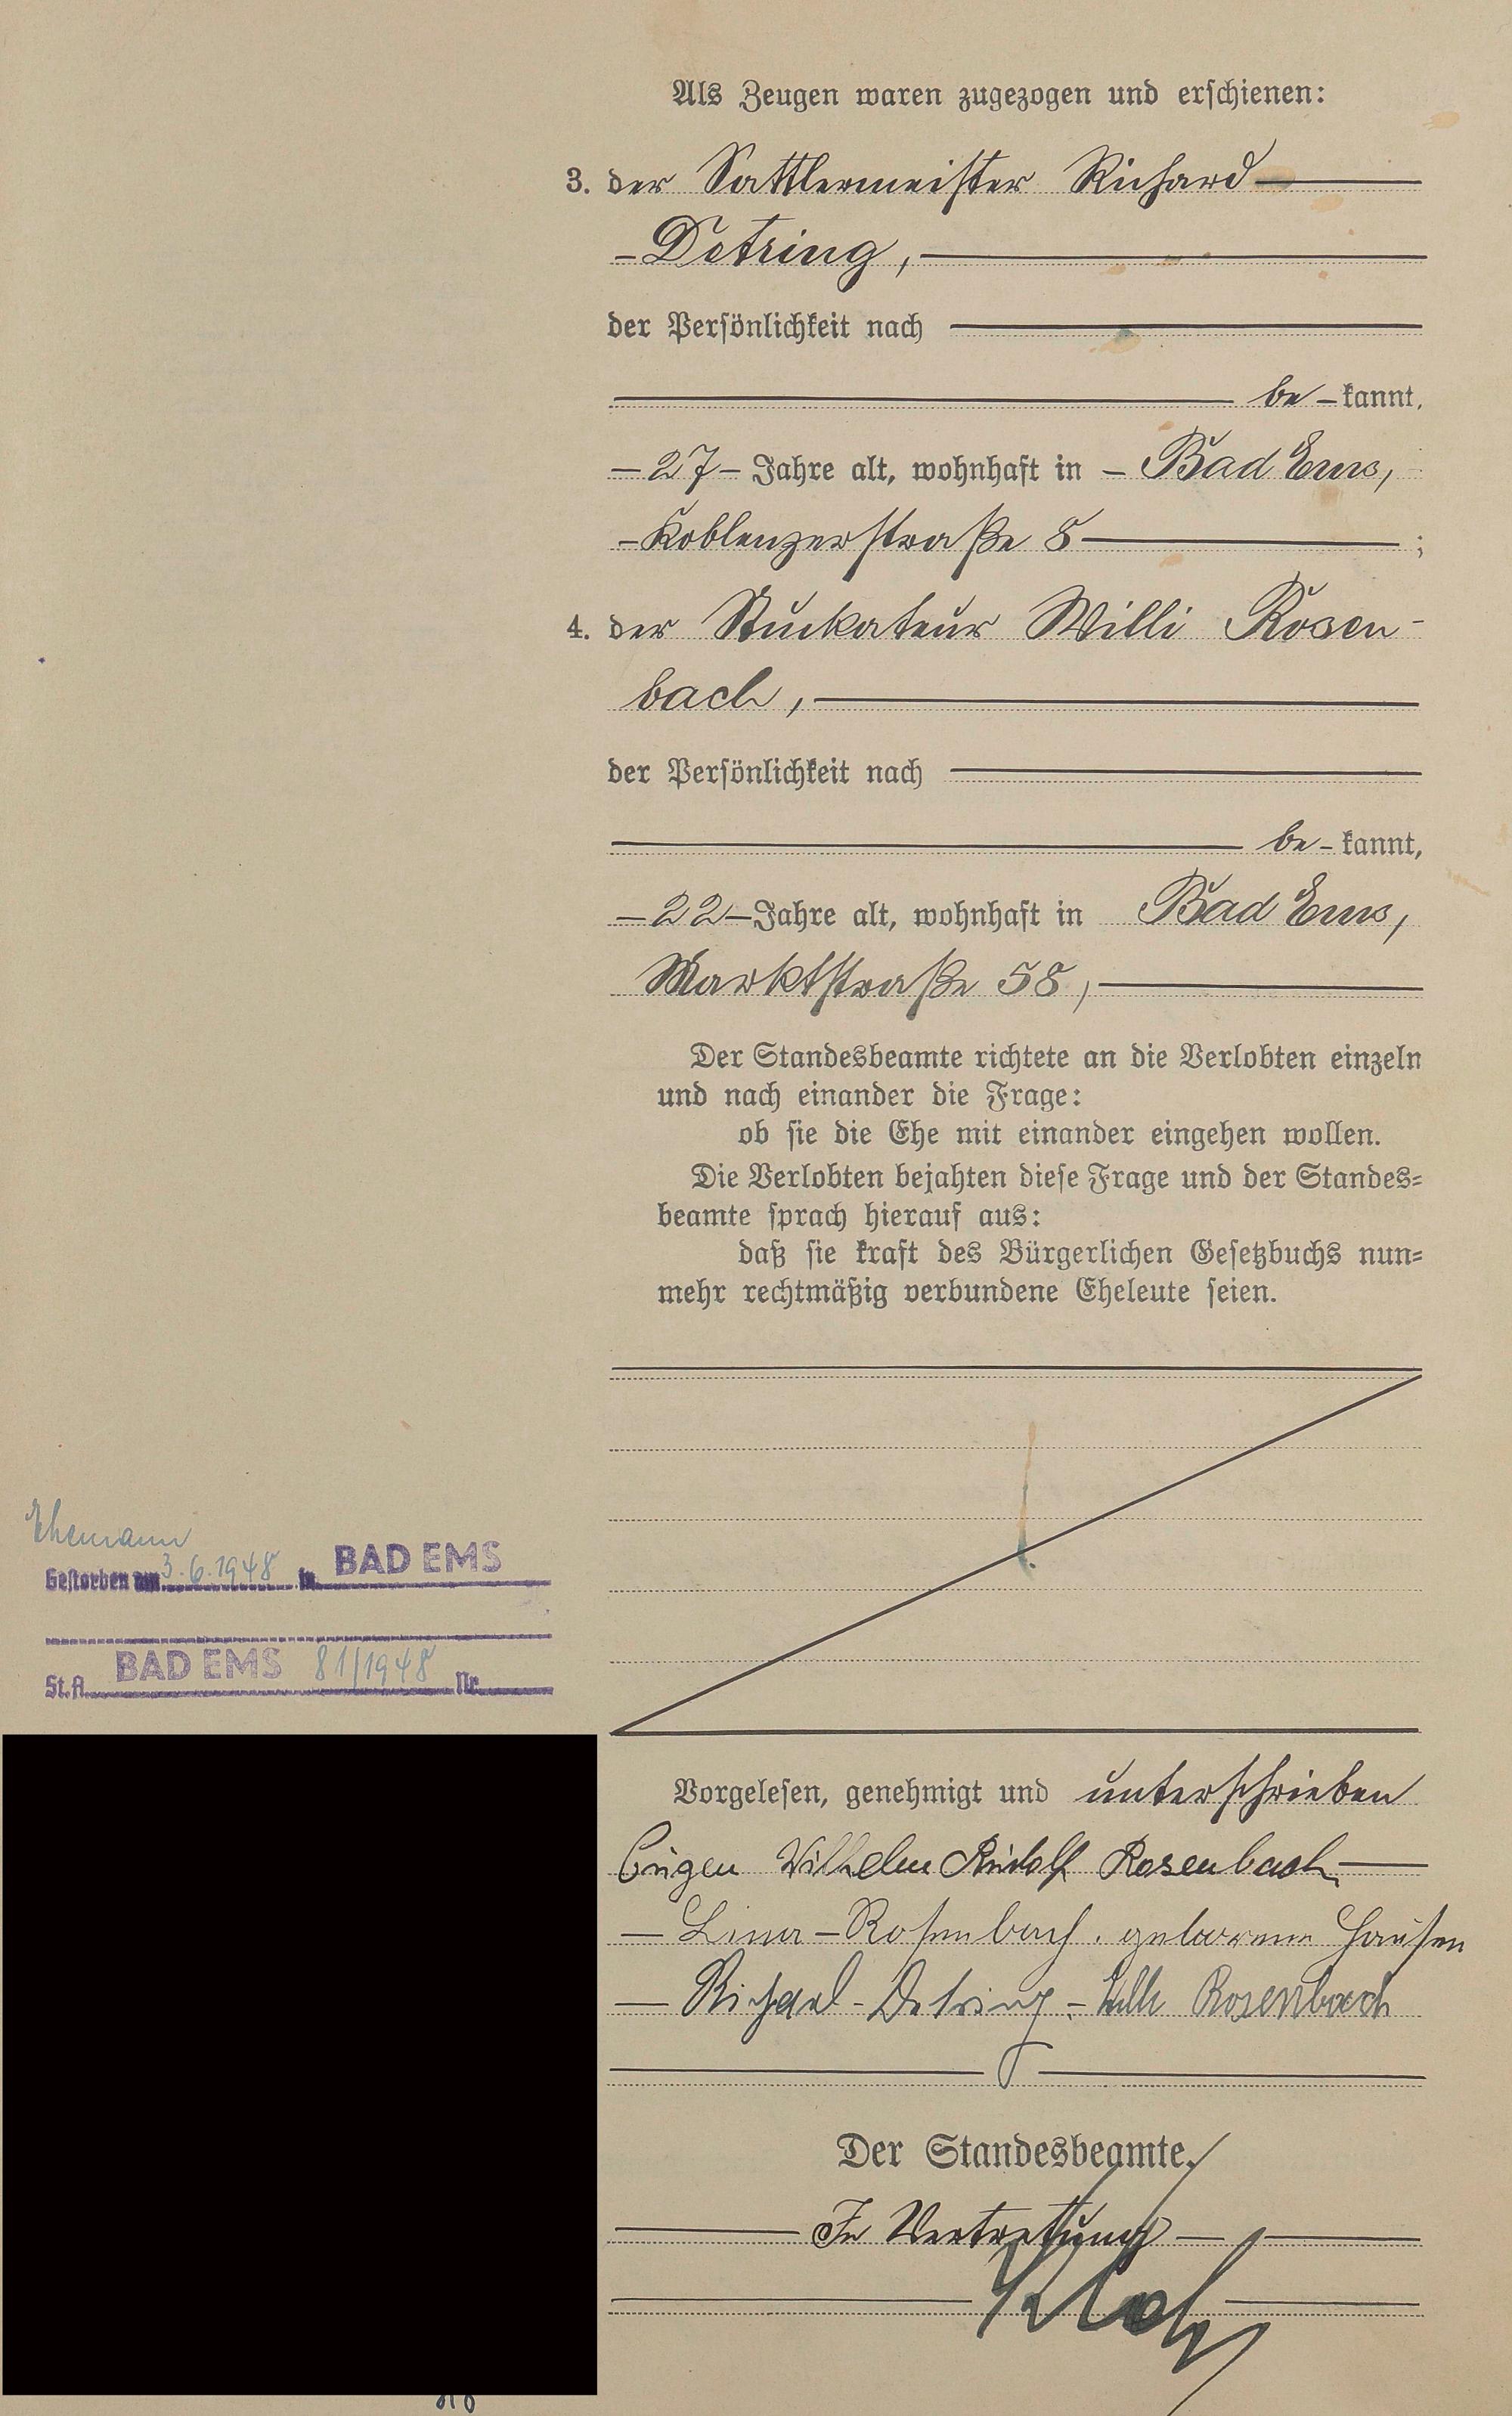 Als Zeugen waren zugezogen und erschienen:
3. der Sattlermeister Richard
Detring,
der Persönlichkeit nach
be-kannt,
27 Jahre alt, wohnhaft in Bad Ems,
Koblenzerstraße 8 ;
4. der Stuckateur Willi Rosen-
bach,
der Persönlichkeit nach
be-kannt,
22 Jahre alt, wohnhaft in Bad Ems,
Marktstraße 58,
Der Standesbeamte richtete an die Verlobten einzeln
und nach einander die Frage:
ob sie die Ehe mit einander eingehen wollen.
Die Verlobten bejahten diese Frage und der Standes=
beamte sprach hierauf aus:
daß sie kraft des Bürgerlichen Gesetzbuchs nun=
mehr rechtmäßig verbundene Eheleute seien.
Ehemann
Gestorben am 3.6.1948 in BAD EMS
St.A. BAD EMS 81/1948 Nr.
Vorgelesen, genehmigt und unterschrieben
Eugen Wilhelm Rudolf Rosenbach
Lina Rosenbach. geborenen Hausen
Richard Detring Willi Rosenbach
Der Standesbeamte.
In Vertretung